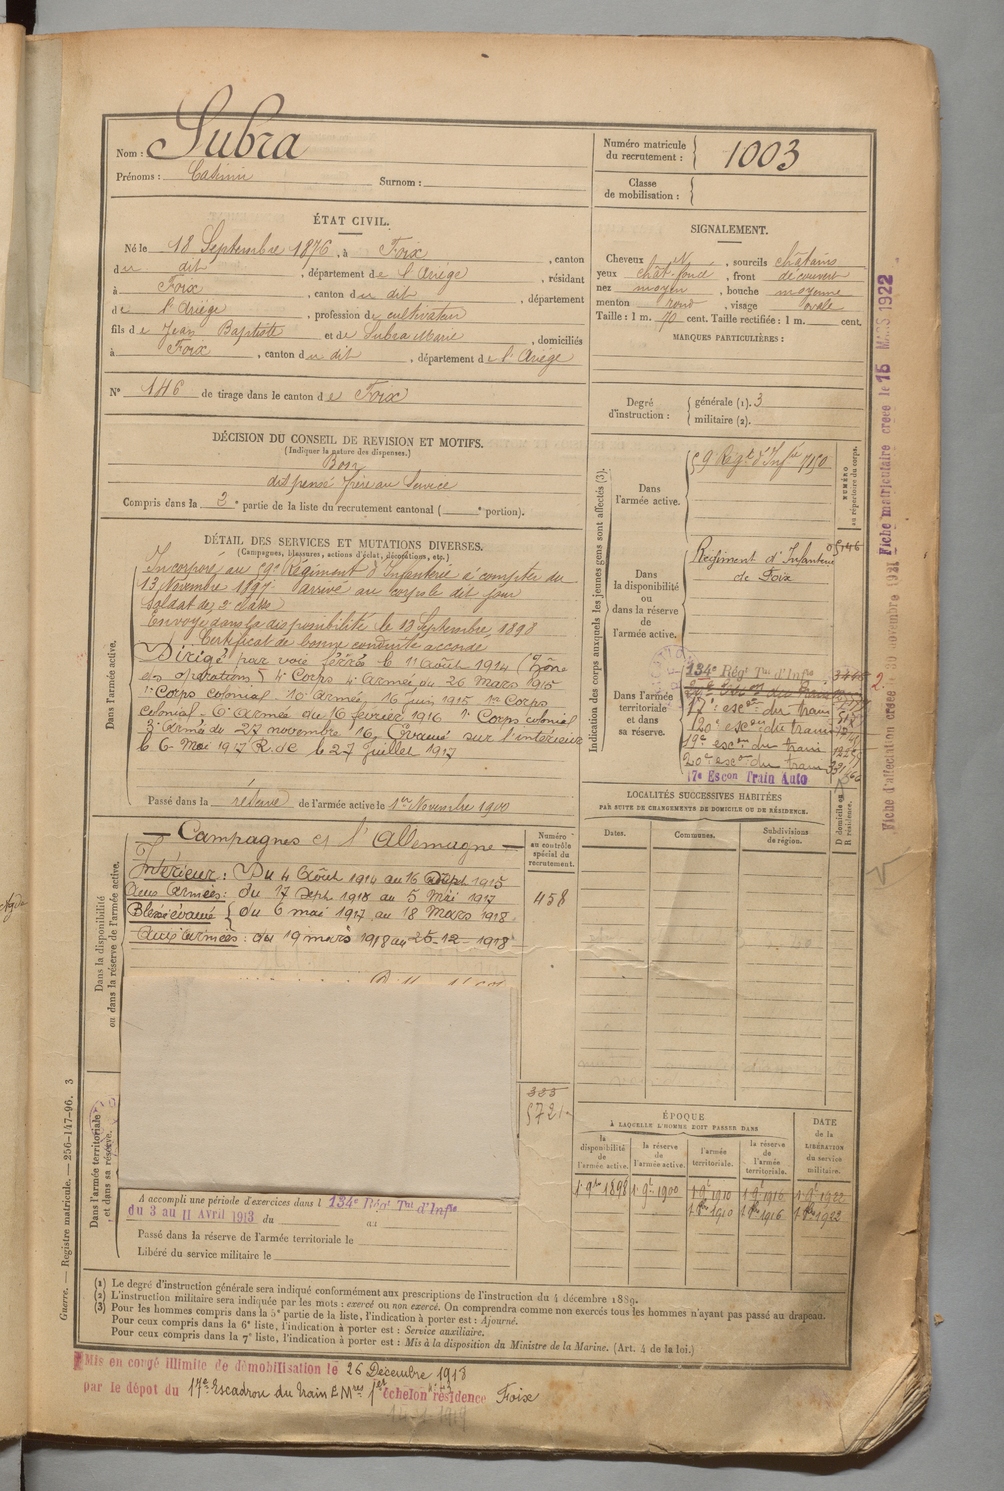 Nom : Subra
Prénoms : Casimir Surnom :
Numéro matricule du recrutement : 1003
Classe de mobilisation :
ÉTAT CIVIL.
Né le 18 Septembre 1876, à Foix, canton
du dit, département de l'Ariège, résidant
à Foix, canton du dit, département
de l'Ariège, profession de cultivateur
fils de Jean Baptiste et de Subra Marie, domiciliés
à Foix, canton du dit, département de l'Ariège
N° 146 de tirage dans le canton de Foix
SIGNALEMENT.
Cheveux N, sourcils châtains
yeux chât. foncé, front découvert
nez moyen, bouche moyenne
menton rond, visage ovale
Taille : 1 m. 70 cent. Taille rectifiée : 1 m. cent.
MARQUES PARTICULIÈRES :
Degré d'instruction : générale (1). 3
militaire (2).
DÉCISION DU CONSEIL DE REVISION ET MOTIFS.
(Indiquer la nature des dispenses.)
Bon
dispensé frère au Service
Compris dans la 2e partie de la liste du recrutement cantonal ( e portion).
DÉTAIL DES SERVICES ET MUTATIONS DIVERSES.
(Campagnes, blessures, actions d'éclat, décorations, etc.)
Dans l'armée active.
Incorporé au 59e Régiment d'Infanterie à compter du
13 Novembre 1897. arrivé au corps le dit jour
Soldat de 2e classe
Envoyé dans la disponibilité le 13 Septembre 1898
Certificat de bonne conduite accordé
Dirigé par voie ferrée le 11 Août 1914 (Zône
des opérations) 4e Corps 4e Armée du 26 Mars 1915
1er Corps colonial 10e Armée 16 juin 1915 1er Corps
colonial 6e Armée du 16 février 1916 1er Corps colonial
3e Armée du 27 novembre 16, Evacué sur l'intérieur
le 6 Mai 1917 R. de le 27 Juillet 1917
Passé dans la réserve de l'armée active le 1er Novembre 1900
Indication des corps auxquels les jeunes gens sont affectés (3).
NUMÉRO au répertoire du corps.
Dans l'armée active.
59 Régt d'Infie 7150
Dans la disponibilité ou dans la réserve de l'armée active.
Régiment d'Infanterie
de Foix
Dans l'armée territoriale et dans sa réserve.
134e Régt Tal d'Infie
17e escon du train
120e escon du train
19e escon du train
20e escon du train
17e Escon Train Auto
Dans la disponibilité ou dans la réserve de l'armée active.
Campagnes et l'Allemagne
Intérieur : Du 4 Août 1914 au 16 Sept 1915
Aux Armées : du 17 Sept 1915 au 5 Mai 1917
Blessé évacué du 6 mai 1917 au 18 Mars 1918
Aux armées : du 19 mars 1918 au 25-12-1918
Numéro au contrôle spécial du recrutement.
458
385
5721
LOCALITÉS SUCCESSIVES HABITÉES
PAR SUITE DE CHANGEMENTS DE DOMICILE OU DE RÉSIDENCE.
Dates. Communes. Subdivisions de région.
D domicile ou R résidence.
ÉPOQUE
À LAQUELLE L'HOMME DOIT PASSER DANS
la disponibilité de l'armée active.
la réserve de l'armée active.
l'armée territoriale.
la réserve de l'armée territoriale.
DATE de la LIBÉRATION du service militaire.
1. 9bre 1898 1. 9bre 1900 1. 9bre 1910 1. 9bre 1916 1. 9bre 1922
1. 8bre 1910 1. 8bre 1916 1. 8bre 1922
Dans l'armée territoriale et dans sa réserve.
A accompli une période d'exercices dans l 134e Régt Tal d'Infie
du 3 au 11 Avril 1913 du au
Passé dans la réserve de l'armée territoriale le
Libéré du service militaire le
(1) Le degré d'instruction générale sera indiqué conformément aux prescriptions de l'instruction du 4 décembre 1889.
(2) L'instruction militaire sera indiquée par les mots : exercé ou non exercé. On comprendra comme non exercés tous les hommes n'ayant pas passé au drapeau.
(3) Pour les hommes compris dans la 5e partie de la liste, l'indication à porter est : Ajourné.
Pour ceux compris dans la 6e liste, l'indication à porter est : Service auxiliaire.
Pour ceux compris dans la 7e liste, l'indication à porter est : Mis à la disposition du Ministre de la Marine. (Art. 4 de la loi.)
Mis en congé illimité de démobilisation le 26 Décembre 1918
par le dépôt du 17e Escadron du Train 1er échelon n° 43 résidence Foix
Guerre. — Registre matricule. — 256-147-96. 3
Fiche d'affectation créée le 30 novembre 1921 Fiche matriculaire créée le 15 MARS 1922